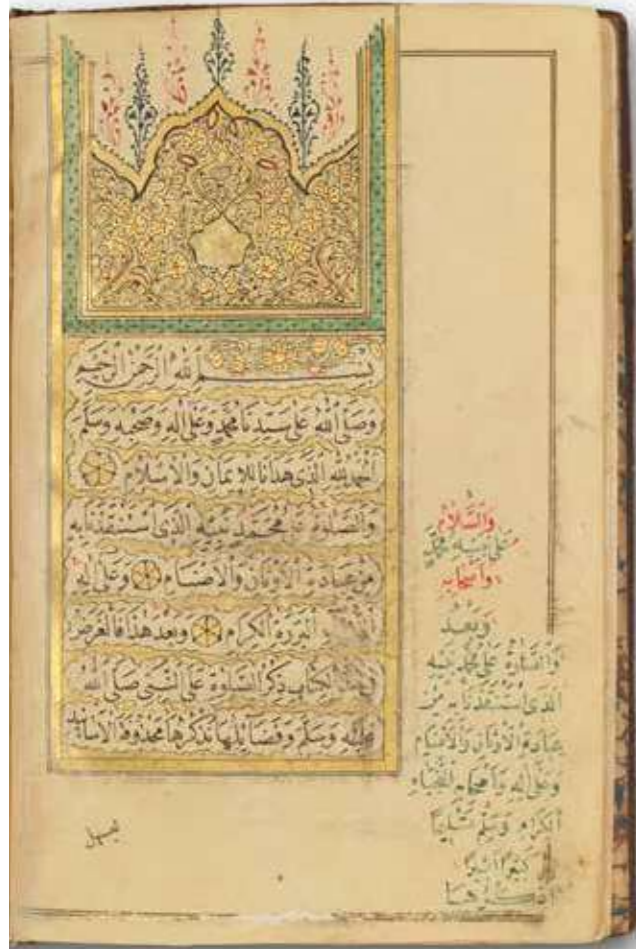 بِسْمِ اللهِ الرَّحْمٰنِ الرَّحِيمِ
وَصَلَّى اللهُ عَلٰى سَيِّدِنَا مُحَمَّدٍ وَعَلٰى اٰلِهِ وَصَحْبِهِ وَسَلَّمَ
اَلْحَمْدُ لِلّٰهِ الَّذِى هَدَانَا لِلْاِيمَانِ وَالْاِسْلَامِ
وَالصَّلٰوةُ عَلٰى مُحَمَّدٍ نَبِيِّهِ الَّذِى اسْتَنْقَذَنَا بِهِ
مِنْ عِبَادَةِ الْاَوْثَانِ وَالْاَصْنَامِ وَعَلٰى اٰلِهِ
الْبَرَرَةِ الْكِرَامِ وَبَعْدَ هٰذَا فَالْغَرَضُ
فِى هٰذَا الْكِتَابِ ذِكْرُ الصَّلٰوةِ عَلَى النَّبِىِّ صَلَّى اللهُ
عَلَيْهِ وَسَلَّمَ وَفَضَائِلِهَا نَذْكُرُهَا مَحْذُوفَةَ الْاَسَانِيدِ
وَالسَّلَامُ
عَلٰى نَبِيِّهِ مُحَمَّدٍ
وَاَصْحَابِهِ
وَبَعْدُ
وَالصَّلٰوةُ عَلٰى مُحَمَّدٍ نَبِيِّهِ
الَّذِى اسْتَنْقَذَنَا بِهِ مِنْ
عِبَادَةِ الْاَوْثَانِ وَالْاَصْنَامِ
وَعَلٰى اٰلِهِ وَاَصْحَابِهِ النُّجَبَاءِ
الْكِرَامِ وَسَلَّمَ تَسْلِيمًا
كَثِيرًا
ليسهل